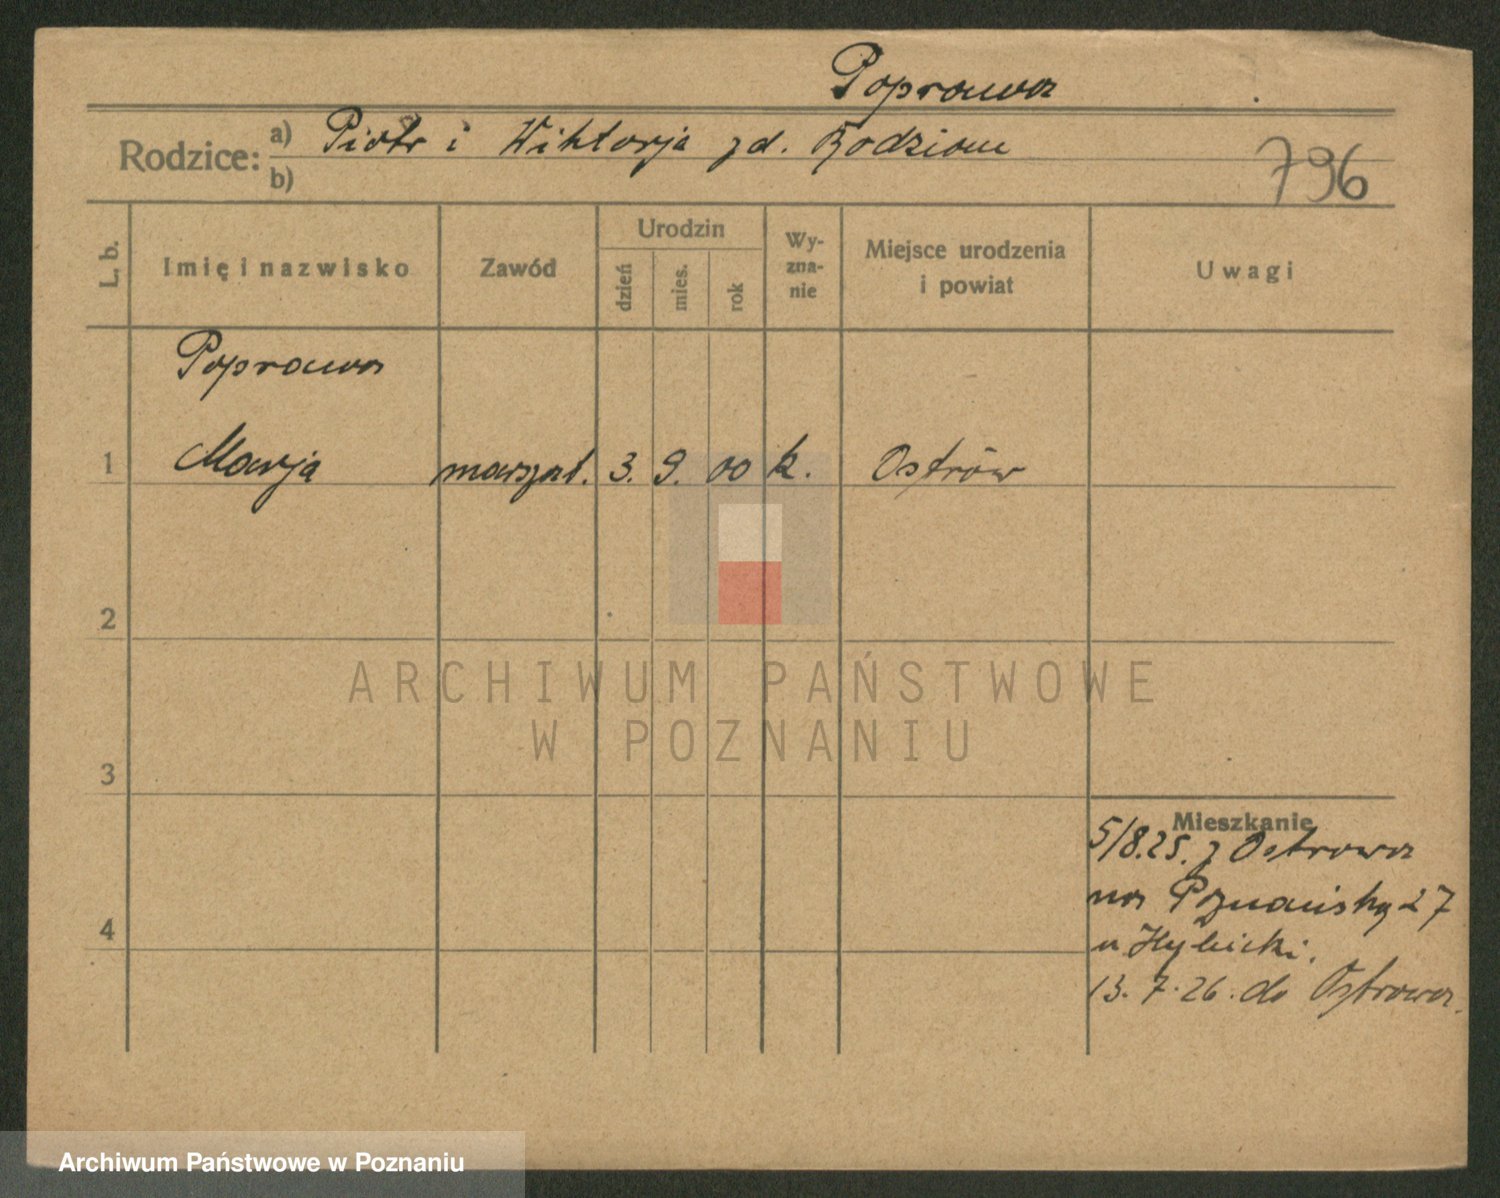 Poprawa
Rodzice: a) Piotr i Wiktorja zd.
b)
796
L. b. Imię i nazwisko Zawód Urodzin dzień mies. rok Wy-zna-nie Miejsce urodzenia i powiat Uwagi
Poprawa
1 Marja 3. 9. 00 k. Ostrów
2
ARCHIWUM PAŃSTWOWE
W POZNANIU
3
Mieszkanie
5/8.25. z Ostrowa
na Poznańską 27
u
4
13.7.26. do Ostrowa.
Archiwum Państwowe w Poznaniu